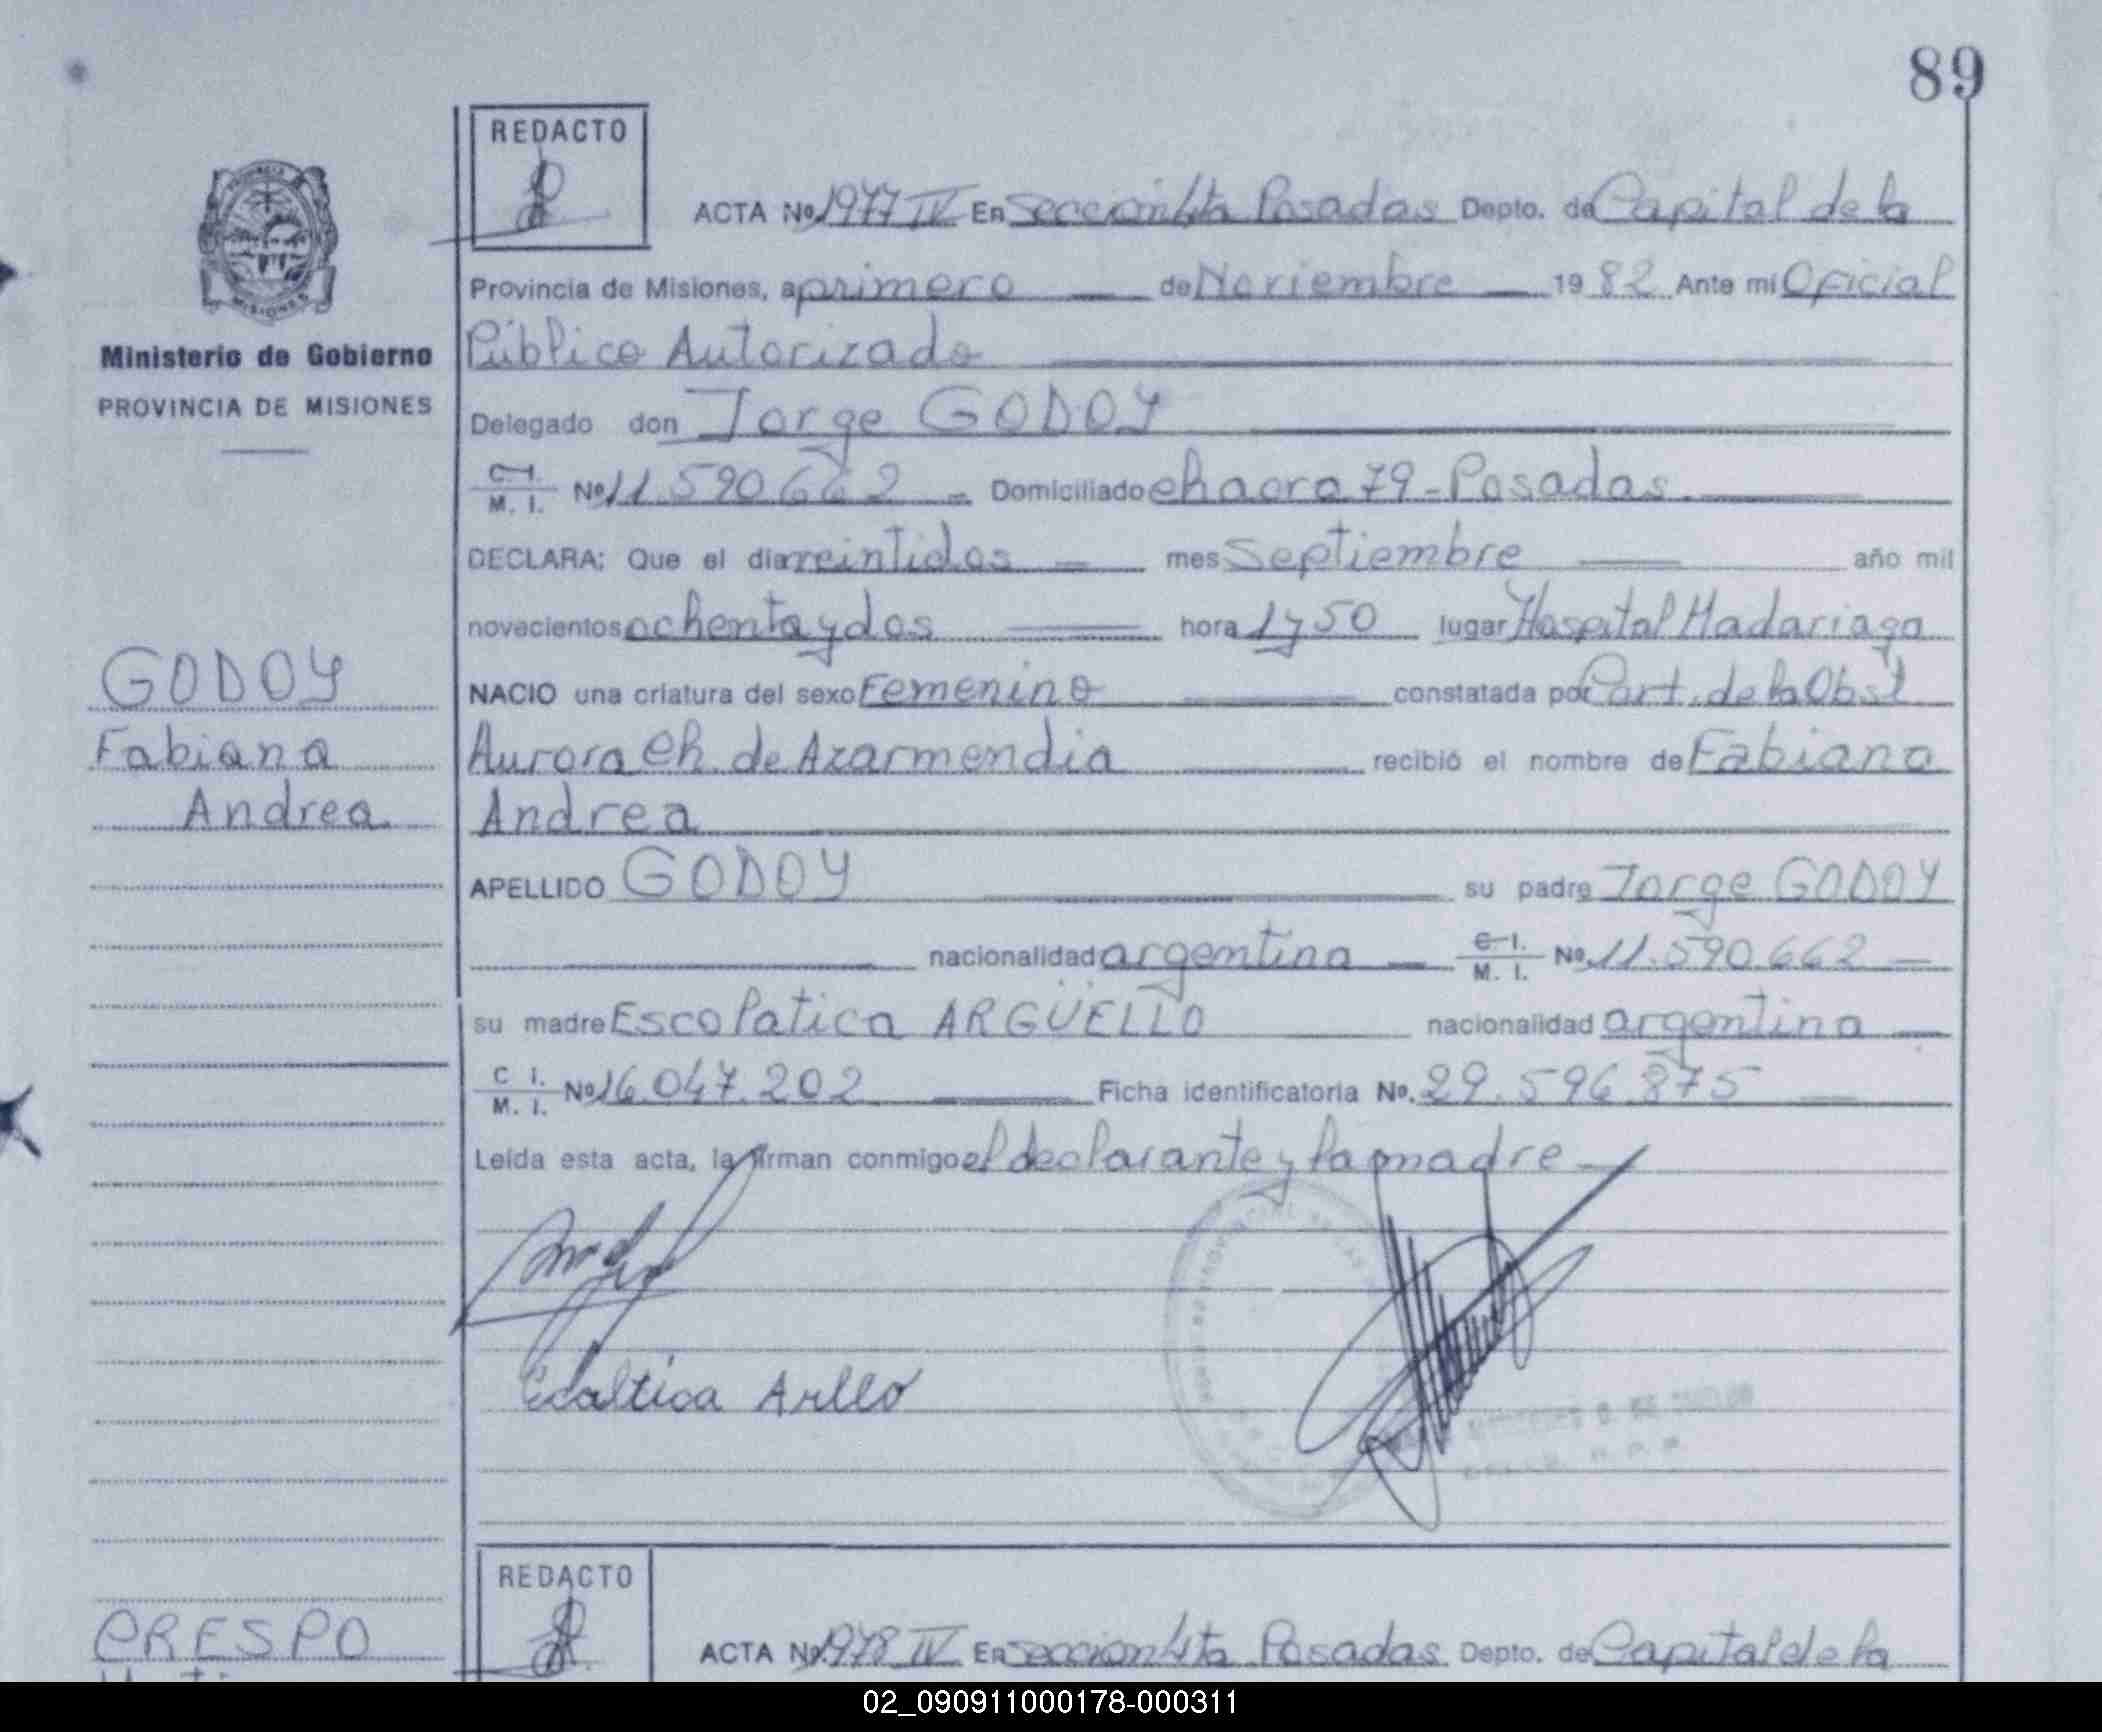 89
REDACTO
ACTA No. 1977 IV En Sección 4ta Posadas Depto. de Capital de la
Provincia de Misiones, a primero de Noviembre 19 82 Ante mi Oficial
Público Autorizado
Ministerio de Gobierno
PROVINCIA DE MISIONES
Delegado don Jorge GODOY
C. I.
M. I. No 11.590.662 Domiciliado chacra 79 - Posadas.
DECLARA: Que el dia veintidos mes Septiembre año mil
novecientos ochenta y dos hora 17 50 lugar Hospital Madariaga
GODOY
NACIO una criatura del sexo Femenino constatada por Part. de la Obst
Fabiana
Aurora Ch. de Azarmendia recibió el nombre de Fabiana
Andrea
Andrea
APELLIDO GODOY su padre Jorge GODOY
nacionalidad argentina C. I.
M. I. No. 11.590.662
su madre Escolatica ARGÜELLO nacionalidad argentina
C I.
M. I. No 16.047.202 Ficha identificatoria No. 29.596.875
Leída esta acta, la firman conmigo el declarante y la madre
Ecaltica Arllo
REDACTO
CRESPO
ACTA No. 1978 IV En sección 4ta Posadas Depto. de Capital de la
02_090911000178-000311